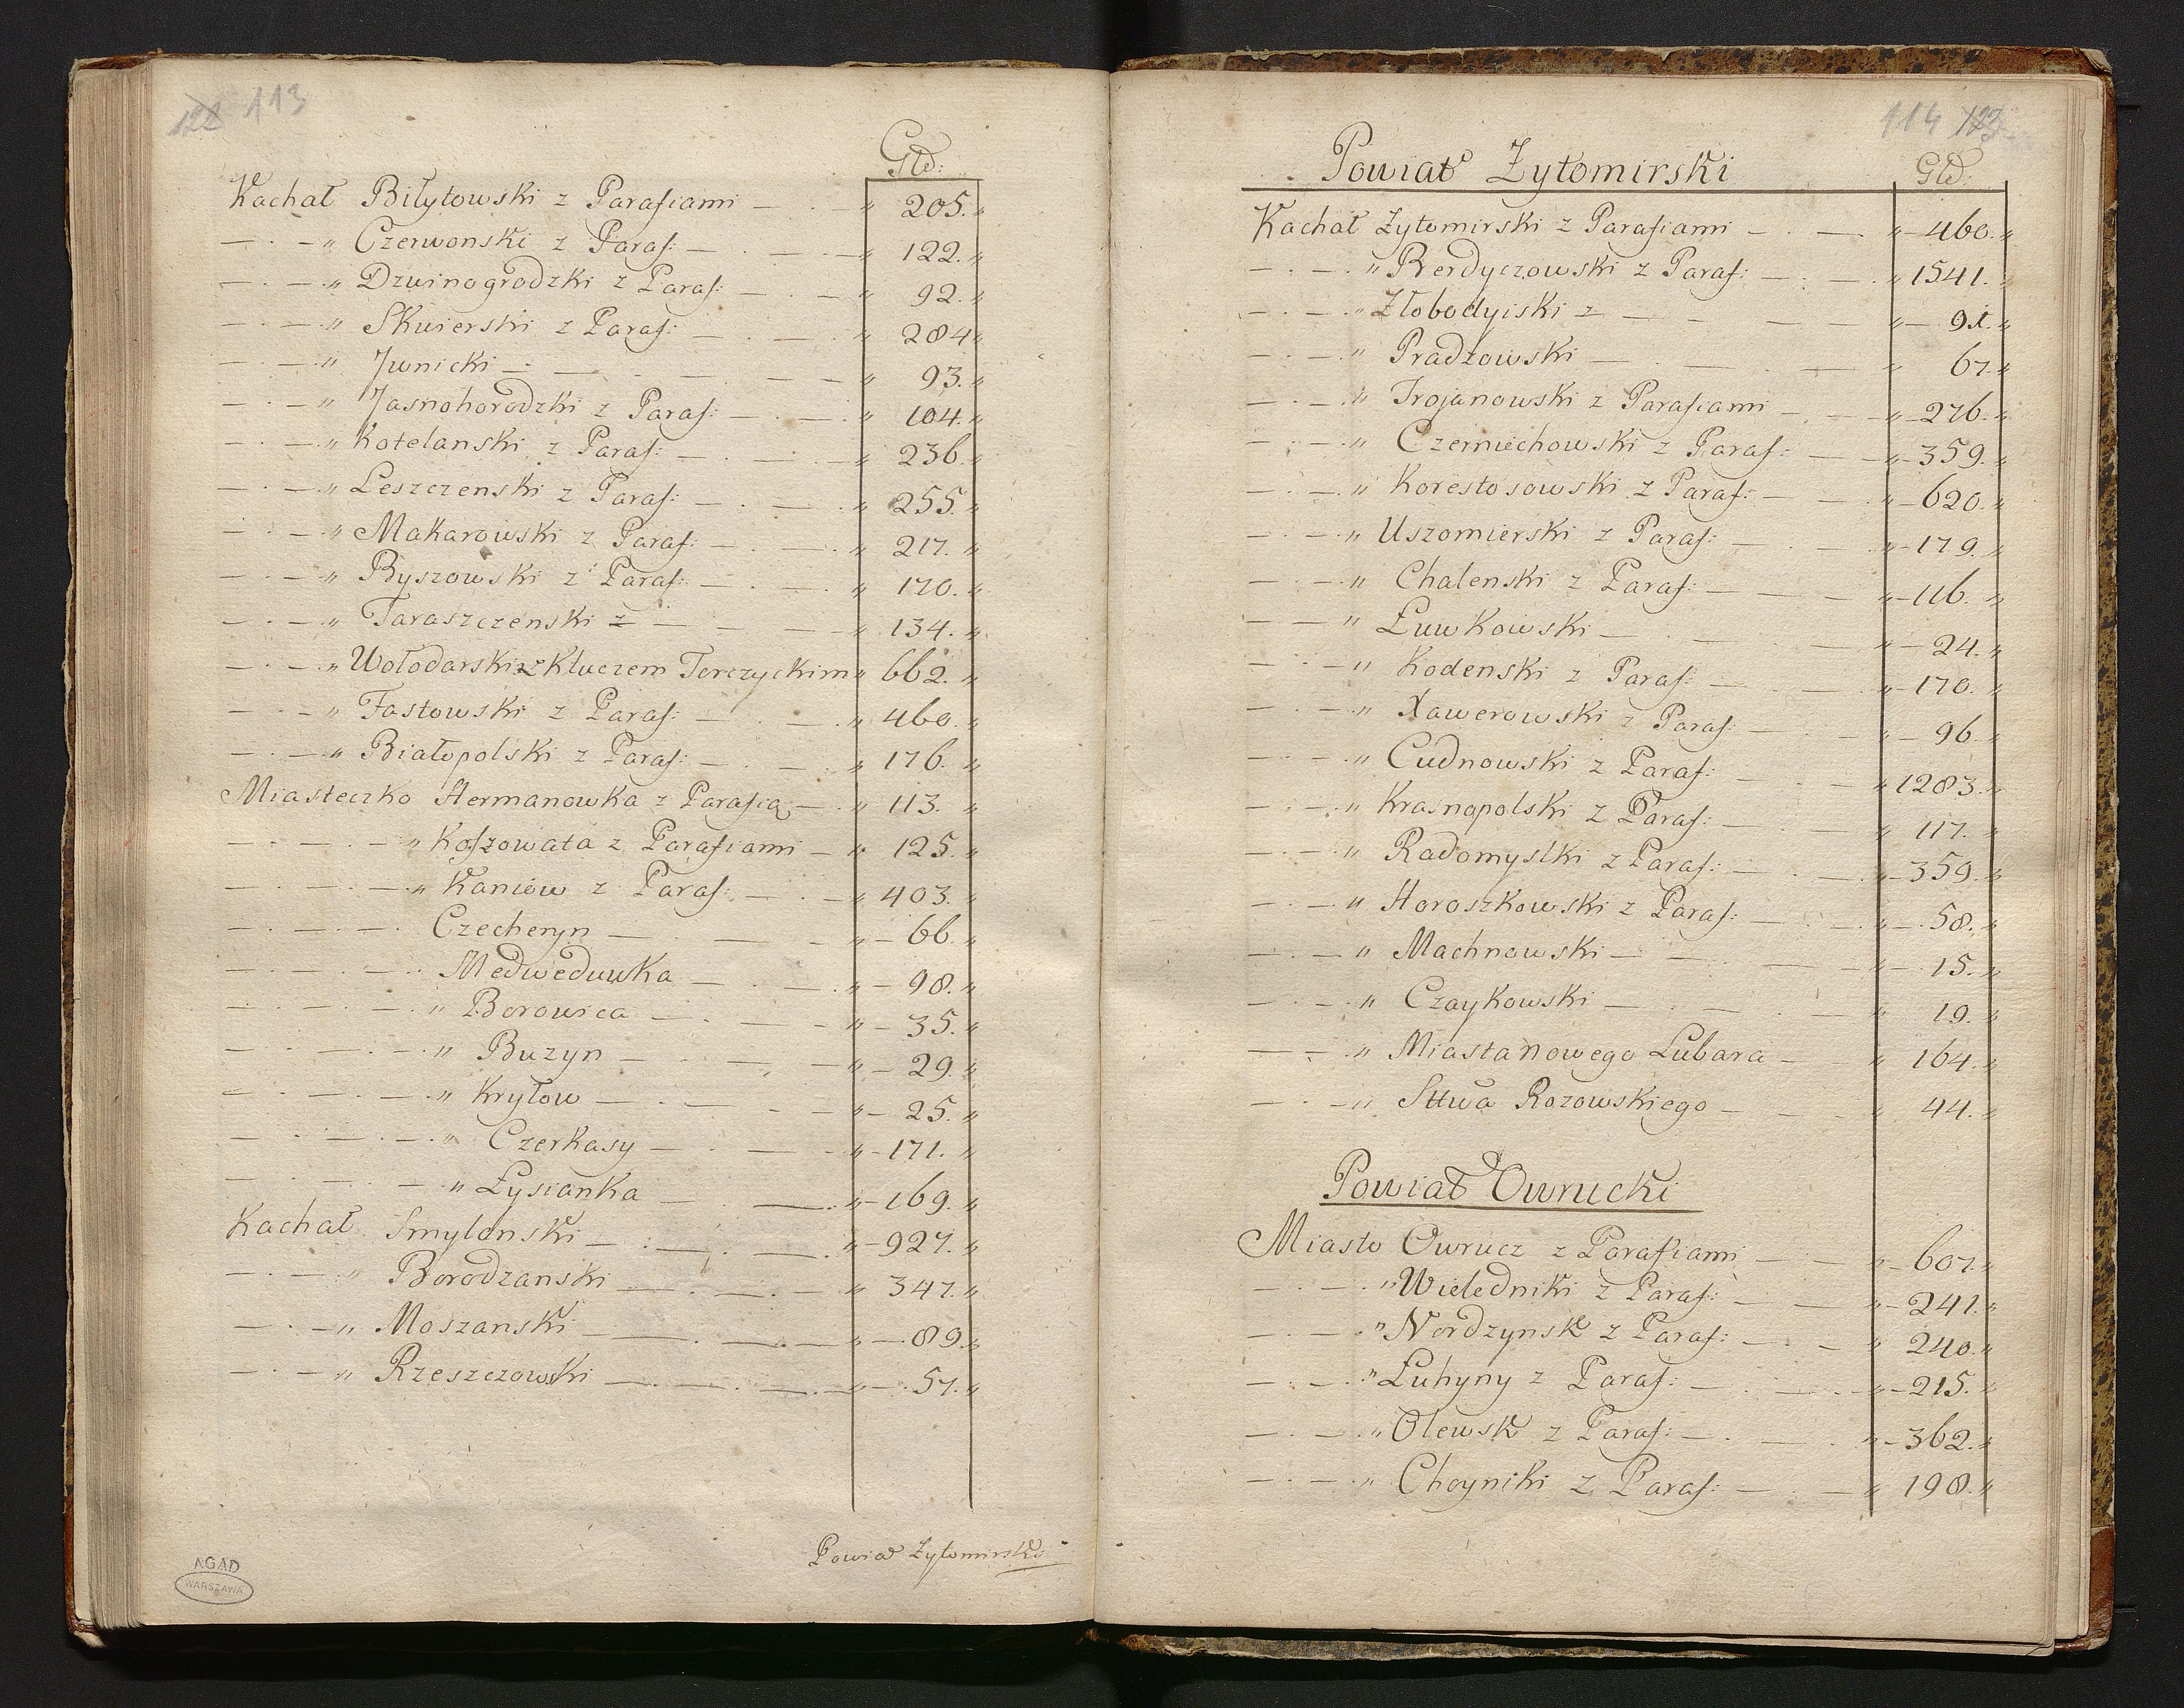 122 113
Głd:
Kachał Biłyłowski z Parafiami — " 205. "
— · — " Czerwonski z Paraf: — " 122. "
— · — " Dzwinogrodzki z Paraf: — " 92. "
— · — " Skwierski z Paraf: — " 284 "
— · — " Jwnicki — " 93. "
— · — " Jasnohorodzki z Paraf: — " 104. "
— · — " Kotelanski z Paraf: — " 236. "
— · — " Leszczenski z Paraf: — " 255. "
— · — " Makarowski z Paraf: — " 217. "
— · — " Byszowski z Paraf: — " 170. "
— · — " Taraszczenski z — " 134. "
— · — " Wołodarski z Kluczem Terczyckim " 662. "
— · — " Fastowski z Paraf: — " 460. "
— · — " Białopolski z Paraf: — " 176. "
Miasteczko Hermanowka z Parafią — " 113. "
— · — " Koszowata z Parafiami — " 125. "
— · — " Kaniew z Paraf: — " 403. "
— · — · Czecheryn — " 66. "
— · — · Medweduwka — " 98. "
— · — " Borowica — " 35. "
— · — " Buzyn — " 29. "
— · — " Kryłow — " 25. "
— · — " Czerkasy — " 171. "
— · — " Łysianka — " 169. "
Kachał Smylanski — " 927. "
— · — " Borodzanski — " 347. "
— · — " Moszanski — " 89. "
— · — " Rzeszczowski — " 57. "
Powiat Żytomirski
AGAD
WARSZAWA
114 123
Powiat Żytomirski Głd:
Kachał Żytomirski z Parafiami — " 460. "
— · — " Berdyczowski z Paraf: — " 1541. "
— · — " Złobodyiski z — " 91. "
— · — " Pradzowski — " 67. "
— · — " Trojanowski z Parafiami — " 276. "
— · — " Czerniechowski z Paraf: — " 359. "
— · — " Korestosowski z Paraf: — " 620. "
— · — " Uszomierski z Paraf: — " 179. "
— · — " Chalenski z Paraf: — " 116. "
— · — " Łuwkowski — " 24. "
— · — " Kodenski z Paraf: — " 170. "
— · — " Xawerowski z Paraf: — " 96. "
— · — " Cudnowski z Paraf: — " 1283. "
— · — " Krasnopolski z Paraf: — " 117. "
— · — " Radomyslki z Paraf: — " 359. "
— · — " Horoszkowski z Paraf: — " 58. "
— · — " Machnowski — " 15. "
— · — " Czaykowski — " 19. "
— · — " Miasta nowego Lubara — " 164. "
— · — " Sttwa Rozowskiego — " 44. "
Powiat Owrucki
Miasto Owrucz z Parafiami — " 607. "
— · — " Wieledniki z Paraf: — " 241. "
— · — " Nordzynsk z Paraf: — " 240. "
— · — " Łuhyny z Paraf: — " 215. "
— · — " Olewsk z Paraf: — " 362. "
— · — " Choyniki z Paraf: — " 198. "